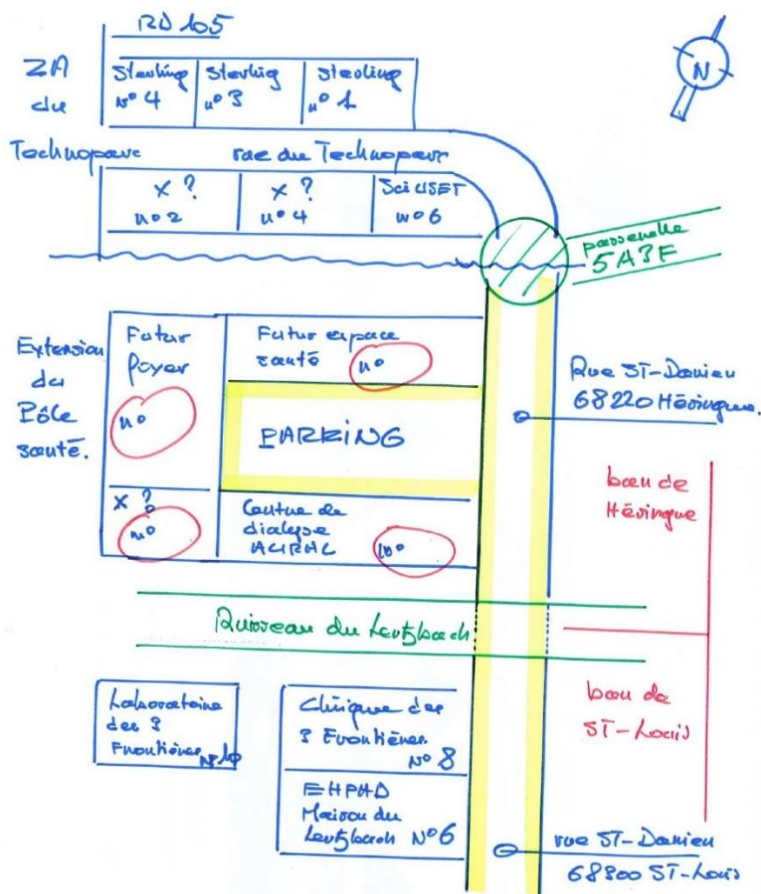 RD 105
ZA
du
Technoparc
Sterling
n° 4
Sterlig
n° 3
Sterling
n° 1
N
rue du Technoparc
X ?
n° 2
X ?
n° 4
Sci USET
n° 6
passerelle
5A3F
Extension
du
Pôle
santé.
Futur
foyer
n°
Futur espace
santé
n°
PARKING
X ?
n°
Centre de
dialyse
n°
Rue ST-Damien
68220 Hésingue.
ban de
Hésingue
Ruisseau du Lertzbach
ban de
ST-Louis
Laboratoire
des 3
Frontières N° 10
Clinique des
3 Frontières.
N° 8
EHPAD
Maison du
Lertzbach N° 6
rue ST-Damien
68300 ST-Louis